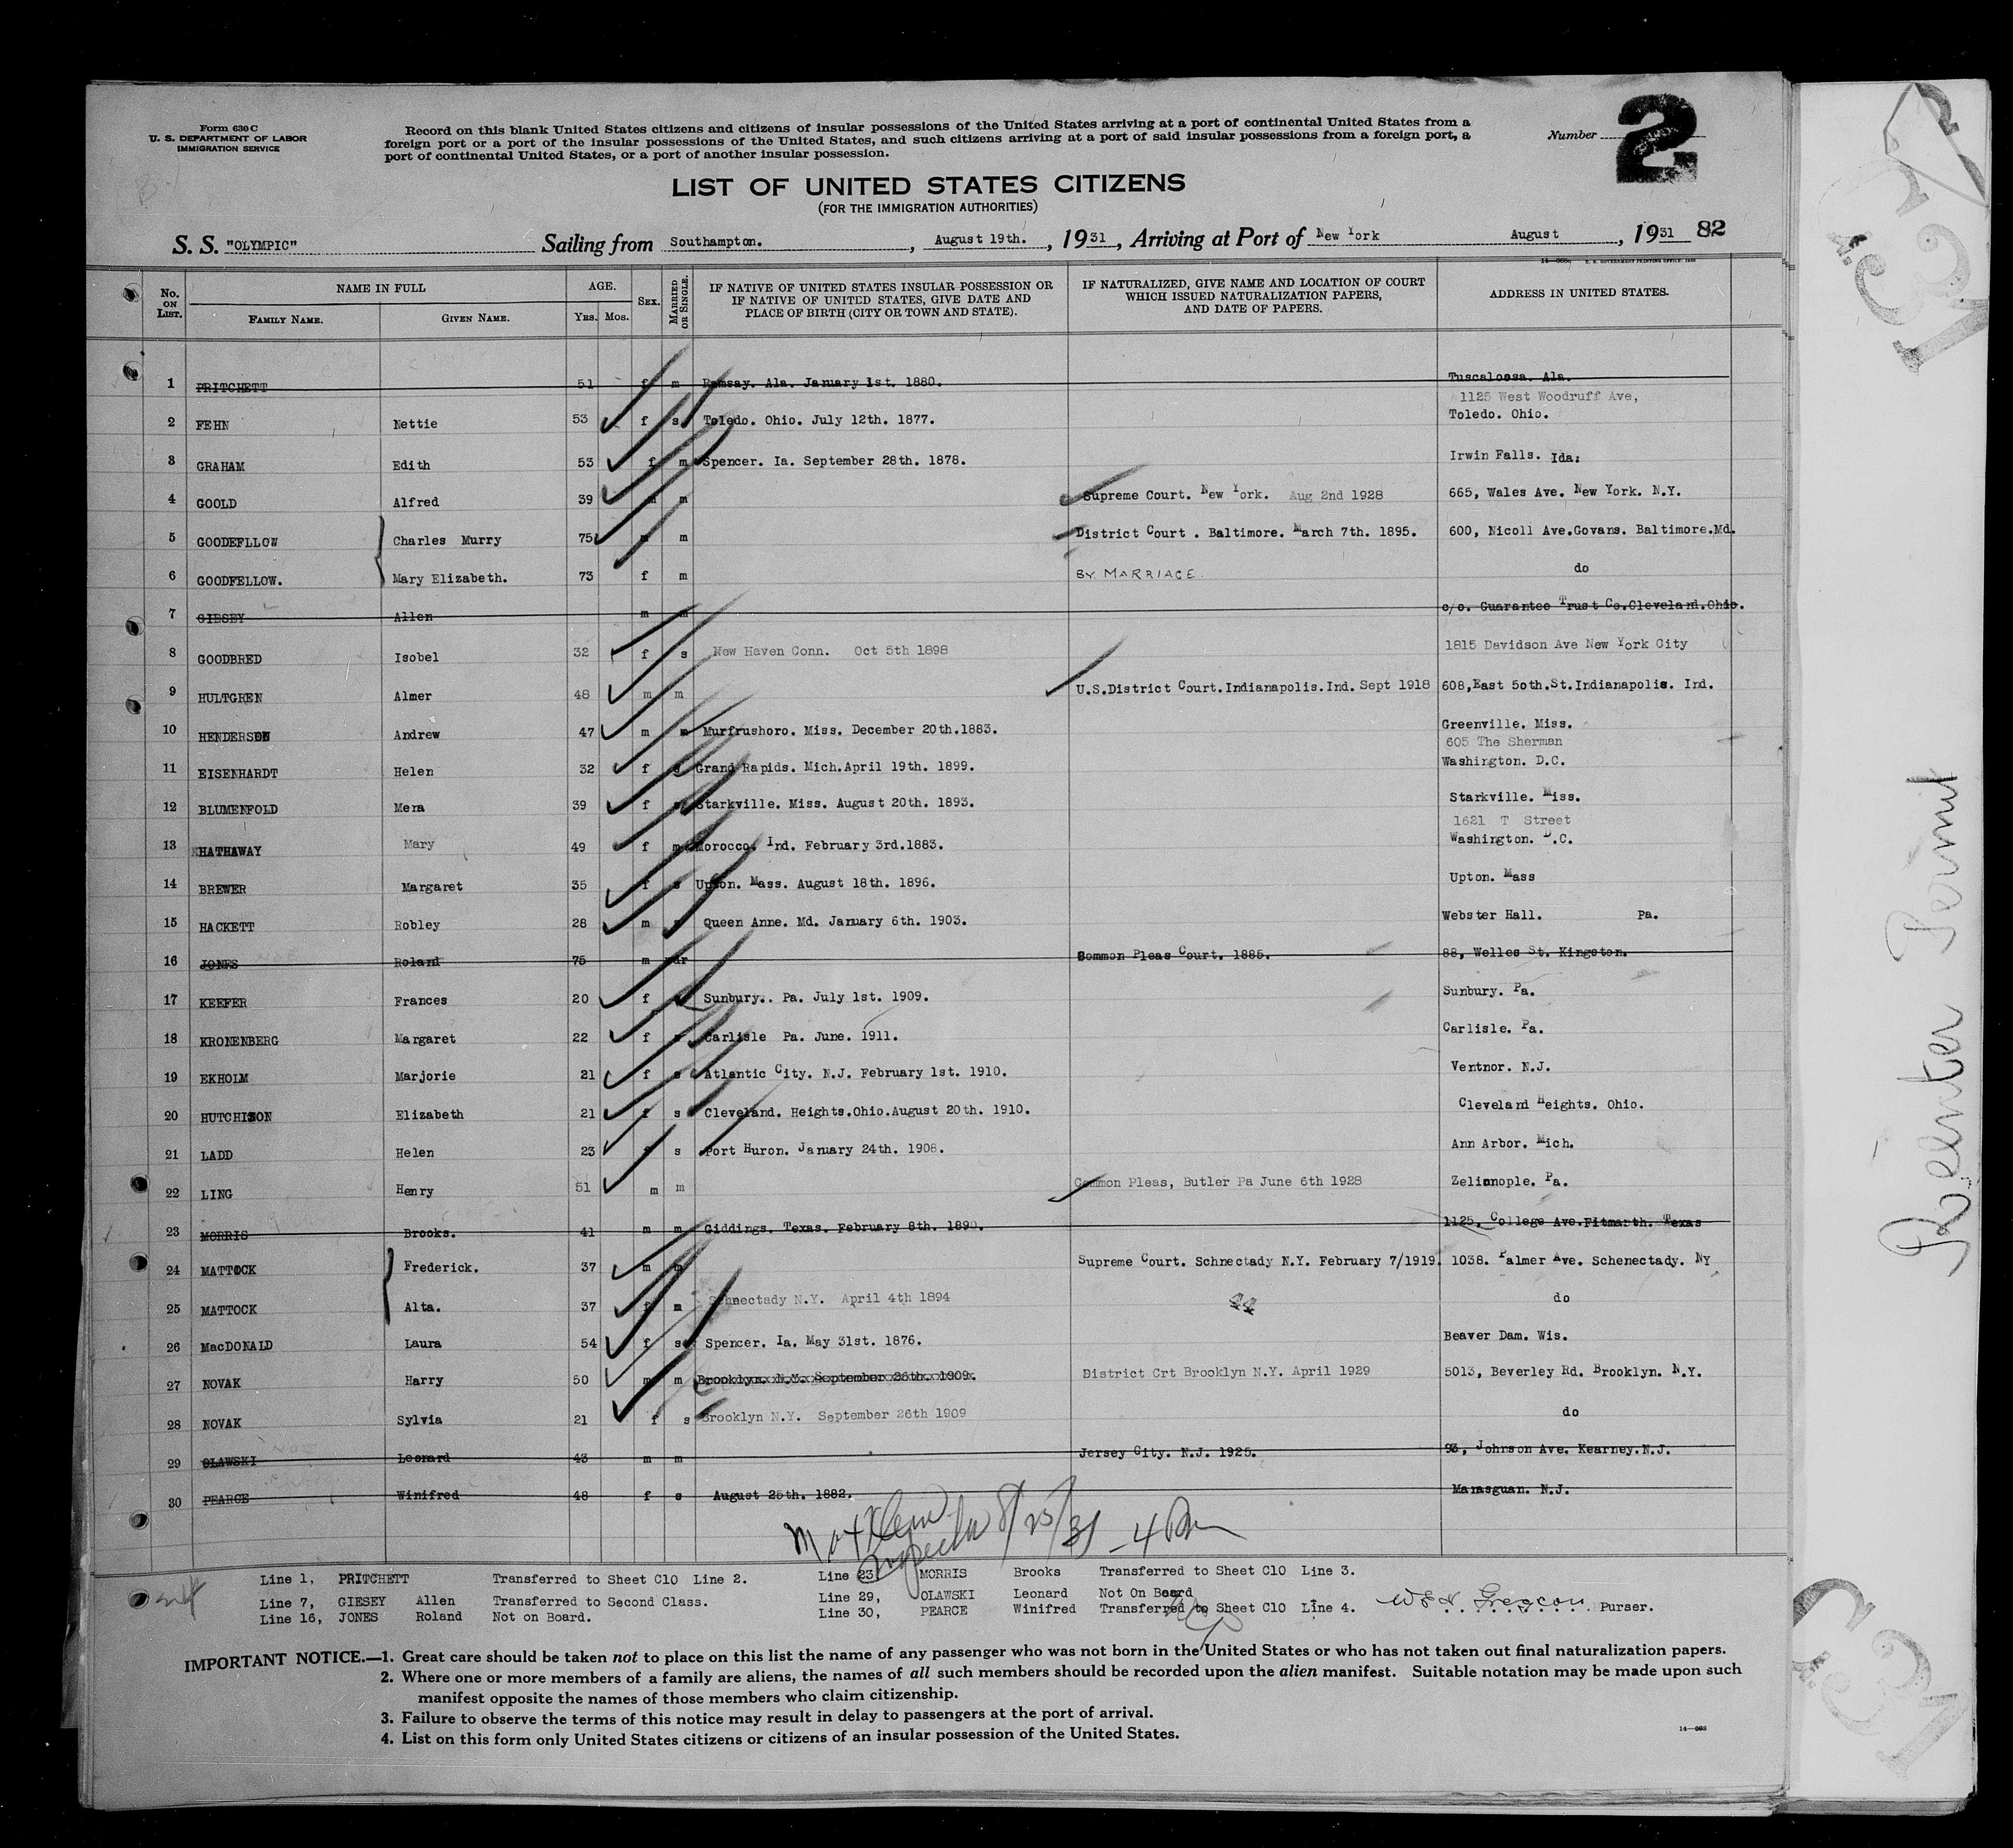 Form 630 C
U. S. DEPARTMENT OF LABOR
IMMIGRATION SERVICE
Record on this blank United States citizens and citizens of insular possessions of the United States arriving at a port of continental United States from a
foreign port or a port of the insular possessions of the United States, and such citizens arriving at a port of said insular possessions from a foreign port, a
port of continental United States, or a port of another insular possession.
Number 2
LIST OF UNITED STATES CITIZENS
(FOR THE IMMIGRATION AUTHORITIES)
S. S. "OLYMPIC" Sailing from Southampton. , August 19th. , 1931 , Arriving at Port of New York August , 1931 82
14—668c U. S. GOVERNMENT PRINTING OFFICE: 1930
No. ON LIST. NAME IN FULL FAMILY NAME. GIVEN NAME. AGE. YRS. MOS. SEX. MARRIED OR SINGLE. IF NATIVE OF UNITED STATES INSULAR POSSESSION OR IF NATIVE OF UNITED STATES, GIVE DATE AND PLACE OF BIRTH (CITY OR TOWN AND STATE). IF NATURALIZED, GIVE NAME AND LOCATION OF COURT WHICH ISSUED NATURALIZATION PAPERS, AND DATE OF PAPERS. ADDRESS IN UNITED STATES.
1 PRITCHETT 51 f m Ramsay. Ala. January 1st. 1880. Tuscaloosa. Ala.
1125 West Woodruff Ave,
2 FEHN Nettie 53 f s Toledo. Ohio. July 12th. 1877. Toledo. Ohio.
3 GRAHAM Edith 53 f m Spencer. Ia. September 28th. 1878. Irwin Falls. Ida.
4 GOOLD Alfred 39 m m Supreme Court. New York. Aug 2nd 1928 665, Wales Ave. New York. N.Y.
5 GOODEFLLOW Charles Murry 75 m m District Court . Baltimore. March 7th. 1895. 600, Nicoll Ave.Govans. Baltimore.Md.
6 GOODFELLOW. Mary Elizabeth. 73 f m BY MARRIAGE do
7 GIESEY Allen m m c/o. Guarantee Trust Co.Cleveland.Ohio.
8 GOODBRED Isobel 32 f s New Haven Conn. Oct 5th 1898 1815 Davidson Ave New York City
9 HULTGREN Almer 48 m m U.S.District Court.Indianapolis.Ind. Sept 1918 608,East 50th.St.Indianapolis. Ind.
10 HENDERSON Andrew 47 m m Murfrushoro. Miss. December 20th.1883. Greenville. Miss.
605 The Sherman
11 EISENHARDT Helen 32 f s Grand Rapids. Mich.April 19th. 1899. Washington. D.C.
12 BLUMENFOLD Mera 39 f s Starkville. Miss. August 20th. 1893. Starkville. Miss.
1621 T Street
13 HATHAWAY Mary 49 f m Morocco. Ind. February 3rd.1883. Washington. D.C.
14 BREWER Margaret 35 f s Upton. Mass. August 18th. 1896. Upton. Mass
15 HACKETT Robley 28 m s Queen Anne. Md. January 6th. 1903. Webster Hall. Pa.
16 JONES Roland 75 m Common Pleas Court. 1885. 88, Welles St. Kingston.
17 KEEFER Frances 20 f Sunbury.. Pa. July 1st. 1909. Sunbury. Pa.
18 KRONENBERG Margaret 22 f s Carlisle Pa. June. 1911. Carlisle. Pa.
19 EKHOLM Marjorie 21 f s Atlantic City. N.J. February 1st. 1910. Ventnor. N.J.
20 HUTCHISON Elizabeth 21 f s Cleveland. Heights.Ohio.August 20th. 1910. Cleveland Heights. Ohio.
21 LADD Helen 23 f s Port Huron. January 24th. 1908. Ann Arbor. Mich.
22 LING Henry 51 m m Common Pleas, Butler Pa June 6th 1928 Zelionople. Pa.
23 MORRIS Brooks. 41 m m Giddings. Texas. February 8th. 1890. 1125, College Ave.Fitmarth. Texas
24 MATTOCK Frederick. 37 m m Supreme Court. Schnectady N.Y. February 7/1919. 1038. Palmer Ave. Schenectady. NY
25 MATTOCK Alta. 37 f m Schnectady N.Y. April 4th 1894 do
26 MacDONALD Laura 54 f s Spencer. Ia. May 31st. 1876. Beaver Dam. Wis.
27 NOVAK Harry 50 m m Brooklyn. N.Y. September 26th. 1909. District Crt Brooklyn N.Y. April 1929 5013, Beverley Rd. Brooklyn. N.Y.
28 NOVAK Sylvia 21 f s Brooklyn N.Y. September 26th 1909 do
29 OLAWSKI Leonard 43 m m Jersey City. N.J. 1925. 93, Johnson Ave. Kearney.N.J.
30 PEARCE Winifred 48 f s August 25th. 1882. Marasguan. N.J.
Inspector 8/25/31 - 4 Pm
Line 1, PRITCHETT Transferred to Sheet C10 Line 2.
Line 7, GIESEY Allen Transferred to Second Class.
Line 16, JONES Roland Not on Board.
Line 23, MORRIS Brooks Transferred to Sheet C10 Line 3.
Line 29, OLAWSKI Leonard Not On Board
Line 30, PEARCE Winifred Transferred to Sheet C10 Line 4.
Purser.
IMPORTANT NOTICE.—1. Great care should be taken not to place on this list the name of any passenger who was not born in the United States or who has not taken out final naturalization papers.
2. Where one or more members of a family are aliens, the names of all such members should be recorded upon the alien manifest. Suitable notation may be made upon such
manifest opposite the names of those members who claim citizenship.
3. Failure to observe the terms of this notice may result in delay to passengers at the port of arrival.
4. List on this form only United States citizens or citizens of an insular possession of the United States.
14—668
Reenter Permit